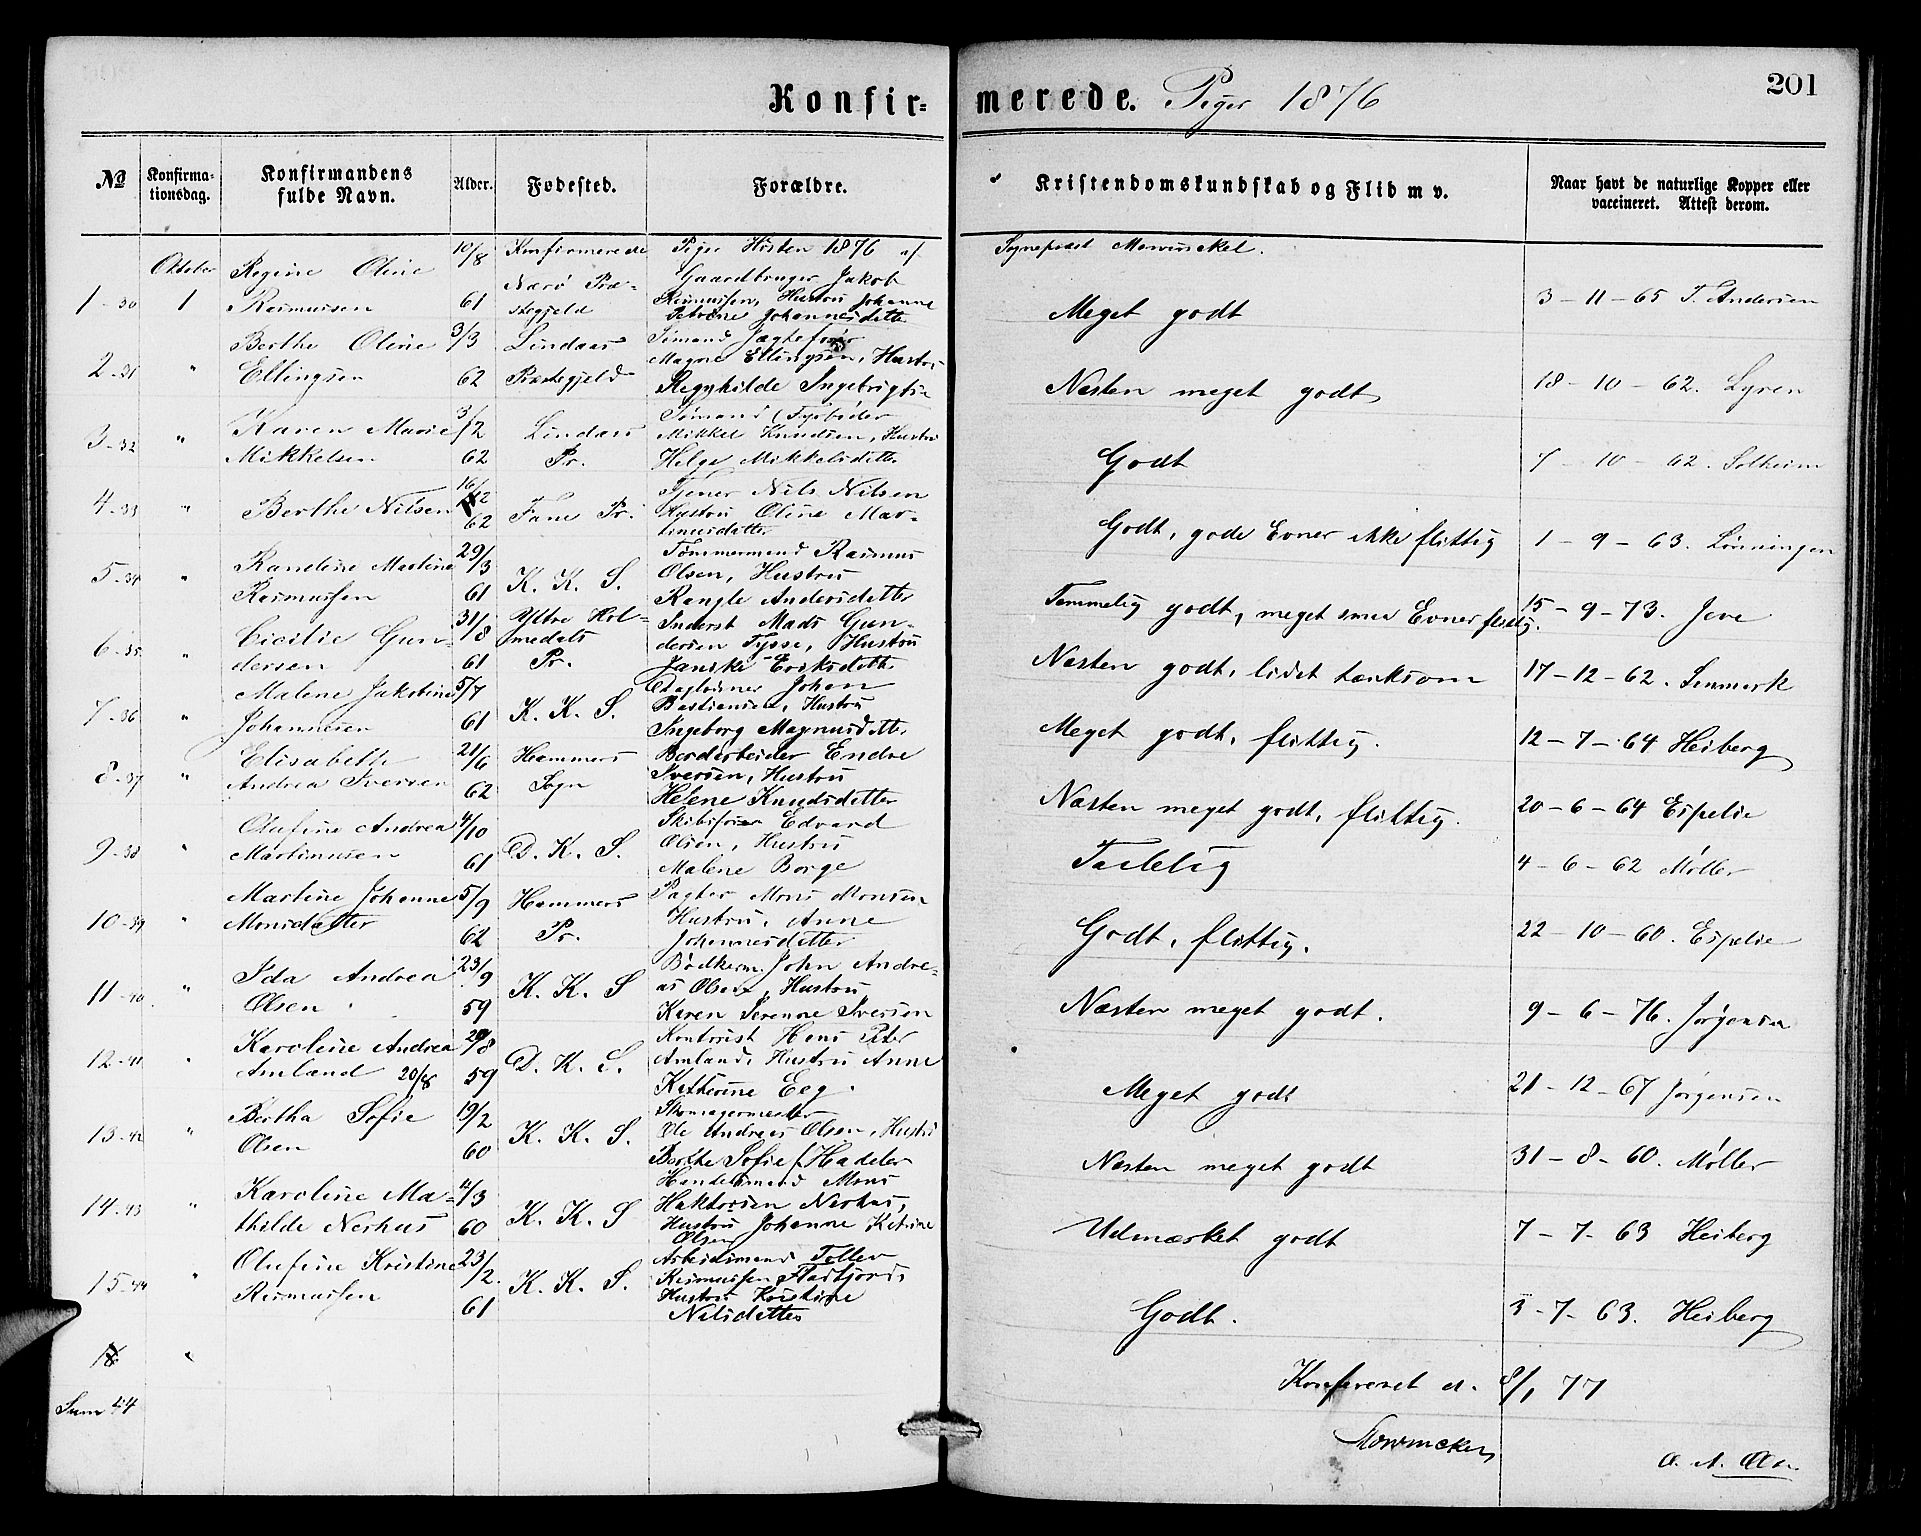 Konfir=
merede. Piger 1876
201
№
Konfirma=
tionsdag.
Konfirmandens
fulde Navn.
Alder.
Fødested.
Forældre.
Kristendomskundskab og Flid m v.
Naar havt de naturlige Kopper eller
vaccineret. Attest derom.
Konfirmerede Piger Hösten 1876 af Sognepræst Mowinckel.
1-30 Oktober 1 Regine Oline 10/8 61 Nærö Præ-
Rasmussen stegjeld
Gaardbruger Jakob
Rasmussen, Hustru Johanne
Petrine Johannesdatter
Meget godt 3-11-65 T. Andersen
2-31 " Berthe Oline 3/3 62 Lindaas
Ellingsen Præstegjeld
Sömand Jægtefører
Magne Ellingsen, Hustru
Ragnhilde Ingebrigts
Næsten meget godt 18-10-62. Lyren
3-32 " Karen Marie 3/2 62 Lindaas
Mikkelsen Pr.
Sömand
Mikkel Knudsen, Hustru
Helge Mikkelsdatter
Godt 7-10-62. Solheim
4-33 " Berthe Nilsen 16/12 62 Fane Pr.
Tjener Nils Nilsen
Hustru Oline Mar-
tinusdatter
Godt, gode Evner ikke flittig 1-9-63. Lönningen
5-34 " Randine Martine 29/3 61 K. K. S.
Rasmussen
Tömmermand Rasmus
Olsen, Hustru
Rangle Andersdatter
Temmelig godt, meget smaa Evner flittig. 15-9-73. Jeve
6-35 " Cicilie Gun- 31/8 61 Yttre Hol-
dersen medals
Pr.
Inderst Mads Gun-
dersen Tysse, Hustru
Janske Eriksdatter
Næsten godt, lidet tænksom 17-12-62.
7-36 " Malene Jakobine 5/7 61 K. K. S.
Johannesen
Daglönner Johan
Bastiansen, Hustru
Ingeborg Magnusdatter
Meget godt, flittig. 12-7-64 Heiberg
8-37 " Elisabeth 21/6 62 Hammers
Andrea Iversen Sogn
Bordarbeider Endre
Iversen, Hustru
Helene Knudsdatter
Næsten meget godt, flittig. 20-6-64 Espelie
9-38 " Olufine Andrea 4/10 61 D. K. S.
Martinusen
Skibsförer Edvard
Olsen, Hustru
Malene Borge
Taalelig 4-6-62 Møller
10-39 " Martine Johanne 5/9 62 Hammers
Monsdatter Pr.
Pagter Mons Monsen
Hustru, Anne
Johannesdatter
Godt, flittig. 22-10-60. Espelie
11-40. " Ida Andrea 23/9 59 K. K. S
Olsen
Bödkerm. John Andre-
as Olsen, Hustru
Karen Serenne Iversen
Næsten meget godt. 9-6-76. Jørgensen
12-41 " Karoline Andrea 20/8 59 D. K. S.
Amland 20/8
Kontorist Hans Peter
Amland, Hustru Anne
Katherine Eeg.
Meget godt 21-12-67 Jørgensen
13-42 " Bertha Sofie 19/2 60 K. K. S.
Olsen
Skomagermester
Ole Andreas Olsen, Hustru
Berthe Sofie f. Hadeler
Næsten meget godt 31-8-60. Møller
14-43 " Karoline Ma- /3 60 K. K. S
thilde Neshus
Handelsmand Mons
Haktorsen Neshus,
Hustru Johanne Katrine
Olsen
Udmærket godt 7-7-63 Heiberg
15-44 " Olufine Kristine 23/2. 61 K. K. S.
Rasmussen
Arbeidsmand Tollev
Rasmussen Fladfjord,
Hustru Kristine
Nilsdatter
Godt. 3-7-63. Heiberg
16 "
Sum 44
Konfereret d. 8/1 77
Mowinckel
O. A. Olsen